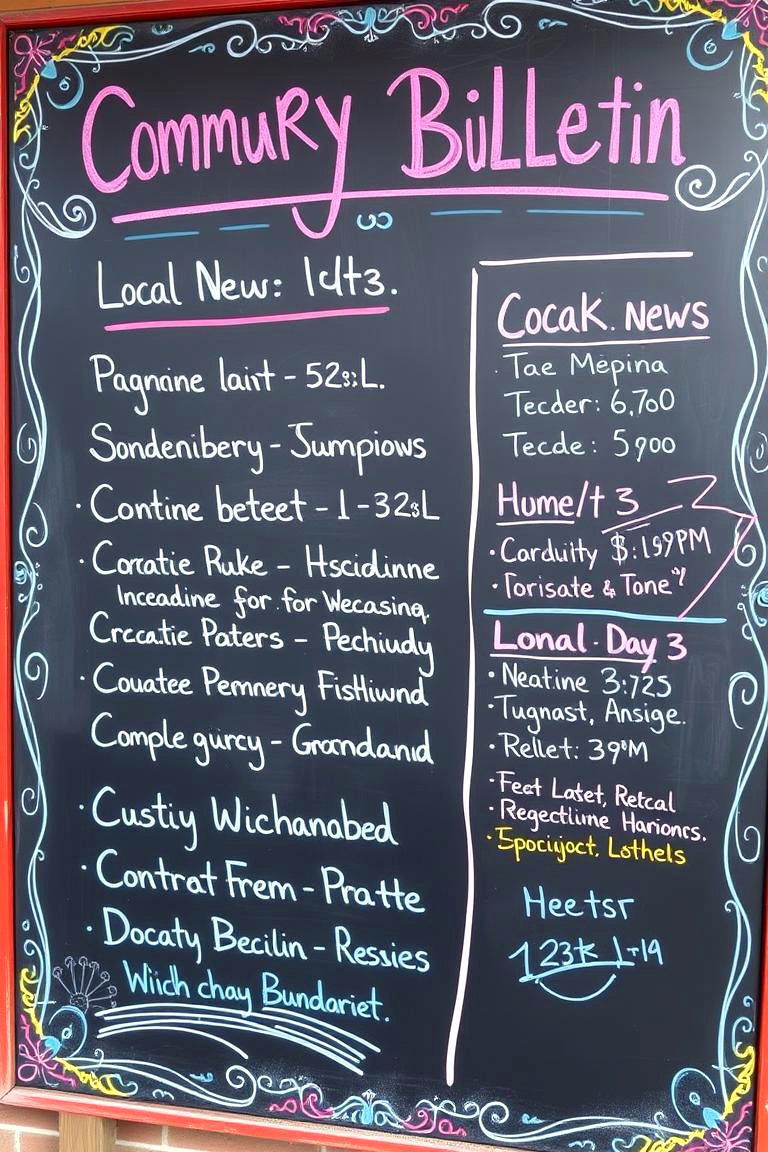 CommuRy BuLLetin
Local New: 1d+3.
Pagnaine laint - 52s:L.
Sondenibery - Jumpiows
· Contine beteet - 1 - 32sL
· Coratie Ruke - Hscidinne
Inceadine for for Wecasing.
Crccatie Paters - Pechiudy
· Couatee Pemnery FisHiwnd
Comple gurcy - Grandanid
· Custiy Wichanabed
· Contrat Frem - Pratte
· Docaty Becilin - Ressies
Wiich chay Bundariet.
Cocak. News
· Tae Mepina
Tecder: 6,700
Tecde: 5900
Hume/t 3
· Carduity $:199PM
· Torisate & Tone
Lonal · Day 3
· Neatine 3:725
· Tugnast, Ansige.
· Rellet: 39°M
· Fect Latet, Retcal
· Regectiime Harioncs.
· Epociyoct. Lothels
Heetsr
123k 1-19